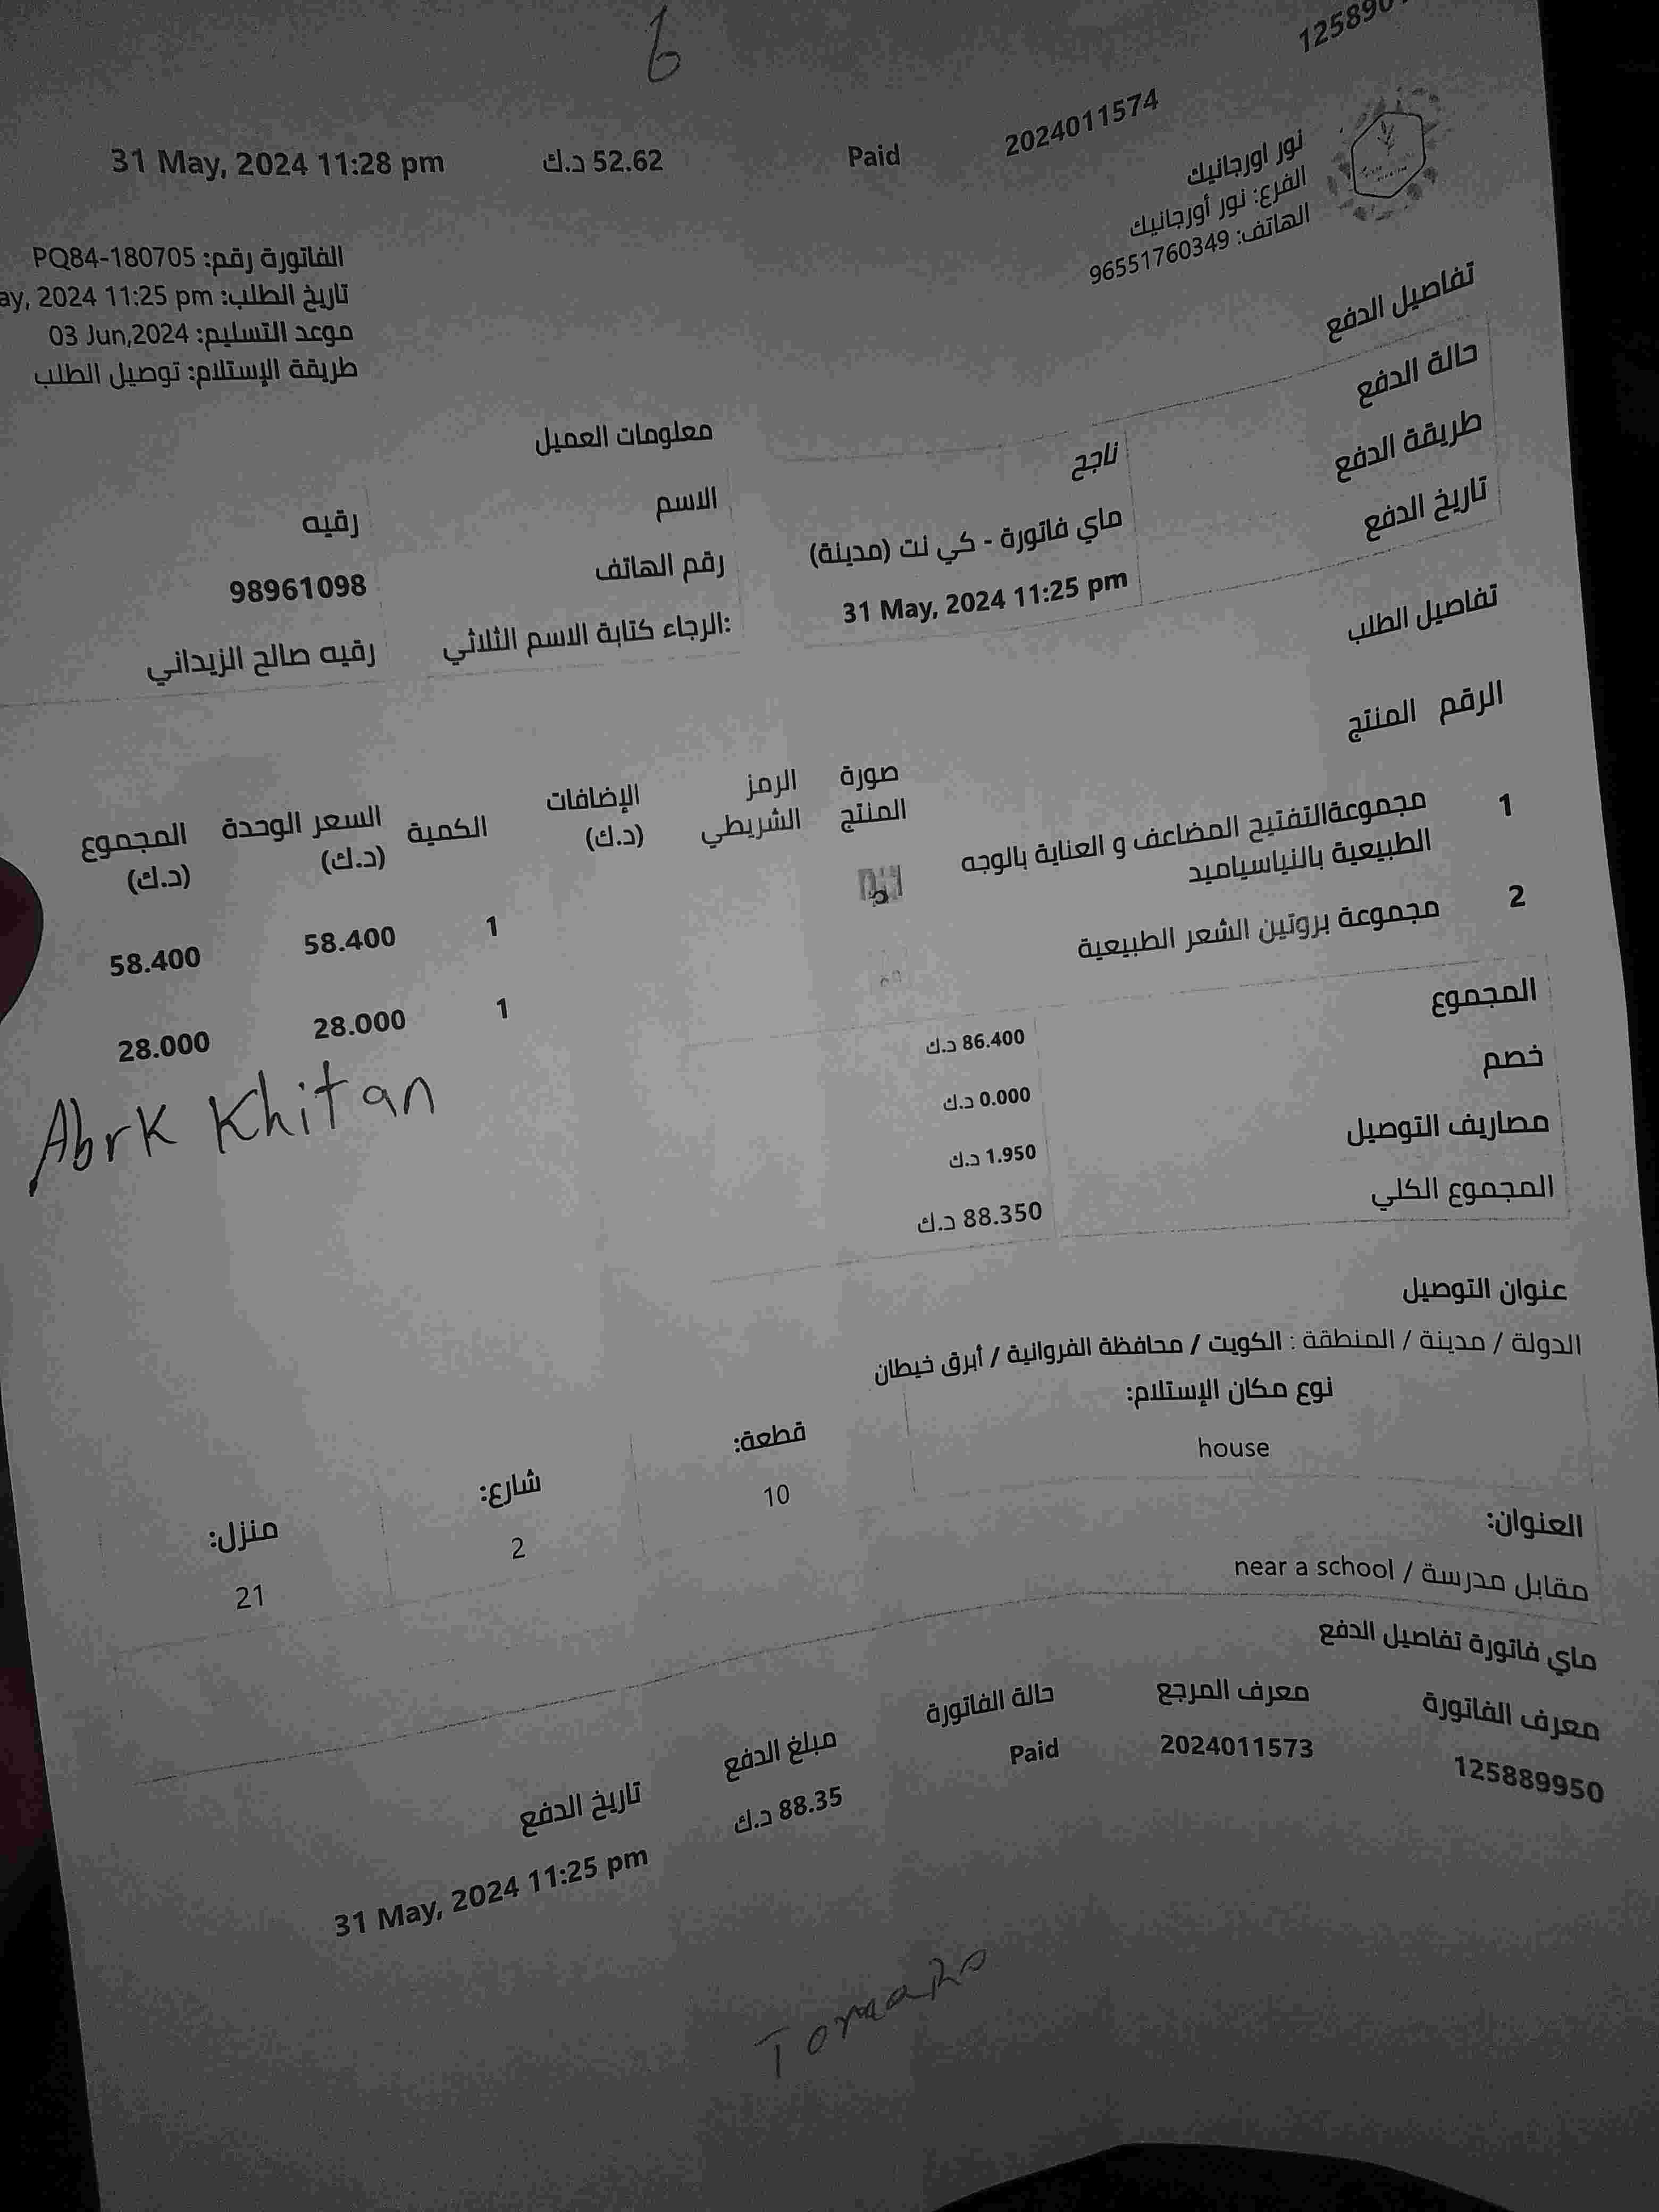 6
125890
31 May, 2024 11:28 pm 52.62 د.ك Paid 2024011574
نور اورجانيك
الفرع: نور أورجانيك
الهاتف: 96551760349
الفاتورة رقم: PQ84-180705
تاريخ الطلب: ay, 2024 11:25 pm
موعد التسليم: 03 Jun,2024
طريقة الإستلام: توصيل الطلب
تفاصيل الدفع
حالة الدفع ناجح
طريقة الدفع ماي فاتورة - كي نت (مدينة)
تاريخ الدفع 31 May, 2024 11:25 pm
معلومات العميل
الاسم رقيه
رقم الهاتف 98961098
الرجاء كتابة الاسم الثلاثي: رقيه صالح الزيداني
تفاصيل الطلب
الرقم المنتج صورة المنتج الرمز الشريطي الإضافات (د.ك) الكمية السعر الوحدة (د.ك) المجموع (د.ك)
1 مجموعةالتفتيح المضاعف و العناية بالوجه الطبيعية بالنياسياميد 1 58.400 58.400
2 مجموعة بروتين الشعر الطبيعية 1 28.000 28.000
المجموع 86.400 د.ك
خصم 0.000 د.ك
مصاريف التوصيل 1.950 د.ك
المجموع الكلي 88.350 د.ك
Abrk Khitan
عنوان التوصيل
الدولة / مدينة / المنطقة : الكويت / محافظة الفروانية / أبرق خيطان
نوع مكان الإستلام: قطعة: شارع: منزل:
house 10 2 21
العنوان:
مقابل مدرسة / near a school
ماي فاتورة تفاصيل الدفع
معرف الفاتورة معرف المرجع حالة الفاتورة مبلغ الدفع تاريخ الدفع
125889950 2024011573 Paid 88.35 د.ك 31 May, 2024 11:25 pm